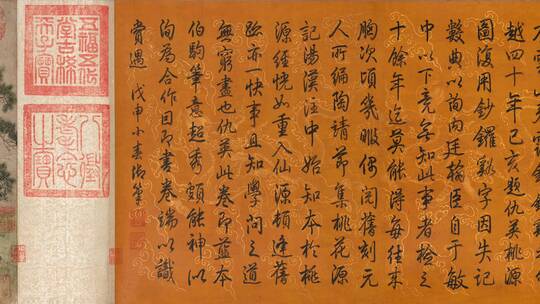 越四十年己亥題仇英桃源
圖復用鈔鑼谿字因失記
數典以茍內廷翰臣自于敏
中以下竟無知此事者檢之
十餘年迄莫能得每往來
胸次頃幾暇偶閱舊刻元
人所編陶靖節集桃花源
記湯漢注中始知本於桃
源經恍如重入仙源頓達舊
跡亦一快事且知學問之道
無窮盡也仇英此卷即藍本
伯駒筆意超秀頗能神以
洵為合作因即書卷端以識
賞遇 戊申小春御筆
五福五代
堂古稀
天子寶
八徵
耄念
之寶